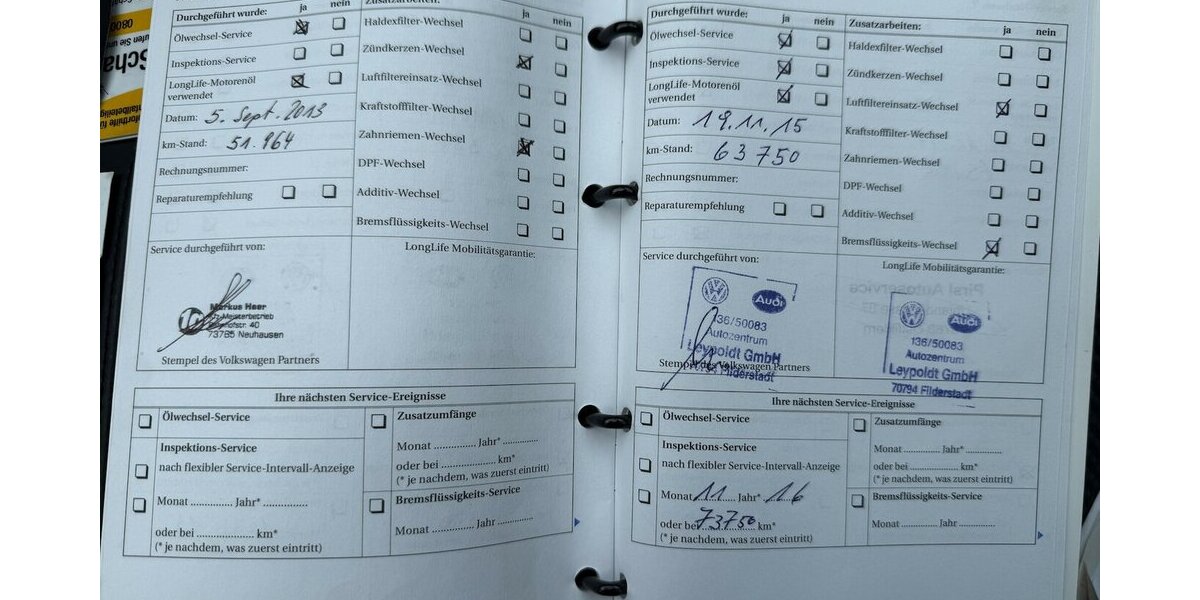 08:00
Durchgeführt wurde: ja nein
Ölwechsel-Service
Inspektions-Service
LongLife-Motorenöl
verwendet
Datum: 5. Sept. 2013
km-Stand: 51.964
Rechnungsnummer:
Reparaturempfehlung
Zusatzarbeiten: ja nein
Haldexfilter-Wechsel
Zündkerzen-Wechsel
Luftfiltereinsatz-Wechsel
Kraftstofffilter-Wechsel
Zahnriemen-Wechsel
DPF-Wechsel
Additiv-Wechsel
Bremsflüssigkeits-Wechsel
Service durchgeführt von:
Markus Heer
Kfz-Meisterbetrieb
Bahnhofstr. 40
73765 Neuhausen
Stempel des Volkswagen Partners
LongLife Mobilitätsgarantie:
Ihre nächsten Service-Ereignisse
Ölwechsel-Service
Inspektions-Service
nach flexibler Service-Intervall-Anzeige
Monat ............. Jahr* ..............
oder bei .................... km*
(* je nachdem, was zuerst eintritt)
Zusatzumfänge
Monat ............. Jahr* ............
oder bei .................... km*
(* je nachdem, was zuerst eintritt)
Bremsflüssigkeits-Service
Monat ............. Jahr ............
Durchgeführt wurde: ja nein
Ölwechsel-Service
Inspektions-Service
LongLife-Motorenöl
verwendet
Datum: 19.11.15
km-Stand: 63750
Rechnungsnummer:
Reparaturempfehlung
Zusatzarbeiten: ja nein
Haldexfilter-Wechsel
Zündkerzen-Wechsel
Luftfiltereinsatz-Wechsel
Kraftstofffilter-Wechsel
Zahnriemen-Wechsel
DPF-Wechsel
Additiv-Wechsel
Bremsflüssigkeits-Wechsel
Service durchgeführt von:
Audi
136/50083
Autozentrum
Leypoldt GmbH
70794 Filderstadt
Stempel des Volkswagen Partners
LongLife Mobilitätsgarantie:
Audi
136/50083
Autozentrum
Leypoldt GmbH
70794 Filderstadt
Ihre nächsten Service-Ereignisse
Ölwechsel-Service
Inspektions-Service
nach flexibler Service-Intervall-Anzeige
Monat 11 Jahr* 16
oder bei 73750 km*
(* je nachdem, was zuerst eintritt)
Zusatzumfänge
Monat ............. Jahr* ............
oder bei .................... km*
(* je nachdem, was zuerst eintritt)
Bremsflüssigkeits-Service
Monat ............. Jahr ............